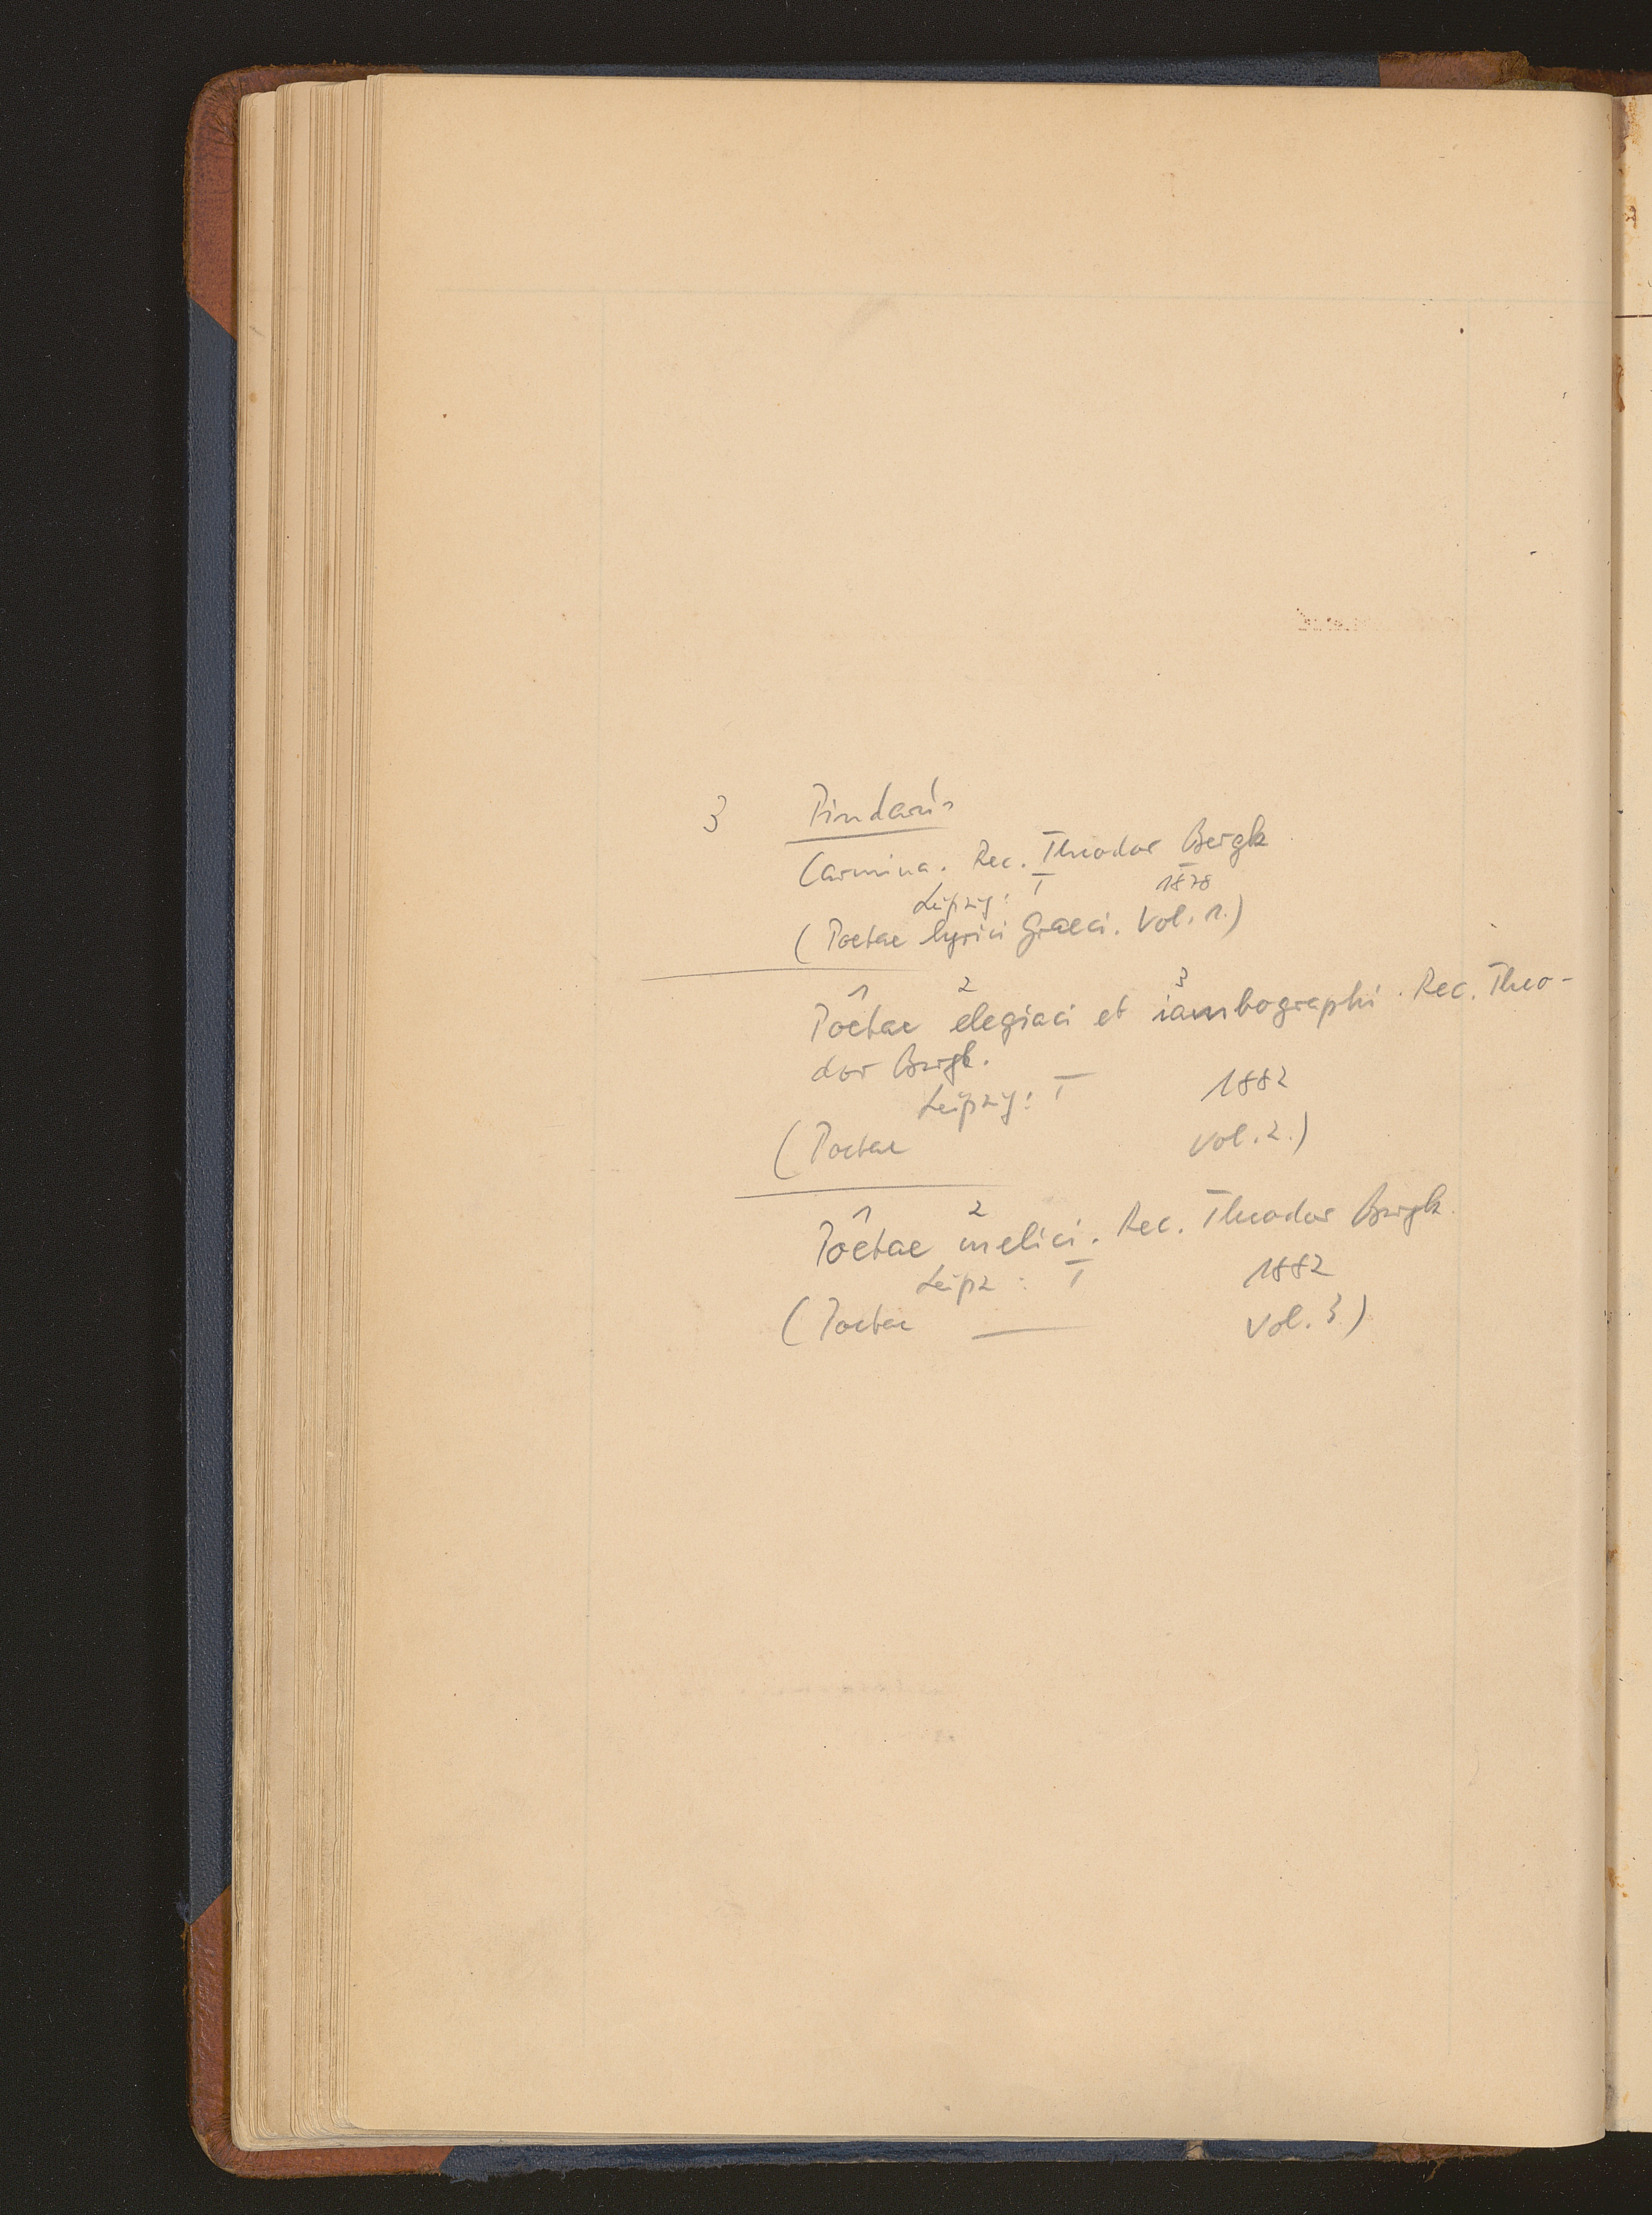 3 Pindarus
Carmina. Rec. Theodor Bergk
Leipzig: T 1878
(Poetae lyrici Graeci. Vol. 1.)
1 2 3
Poetae elegiaci et iambographi. Rec. Theo-
dor Bergk.
Leipzig: T 1882
(Poetae Vol. 2.)
1 2
Poetae melici. Rec. Theodor Bergk.
Leipz: T 1882
(Poetae — Vol. 3)